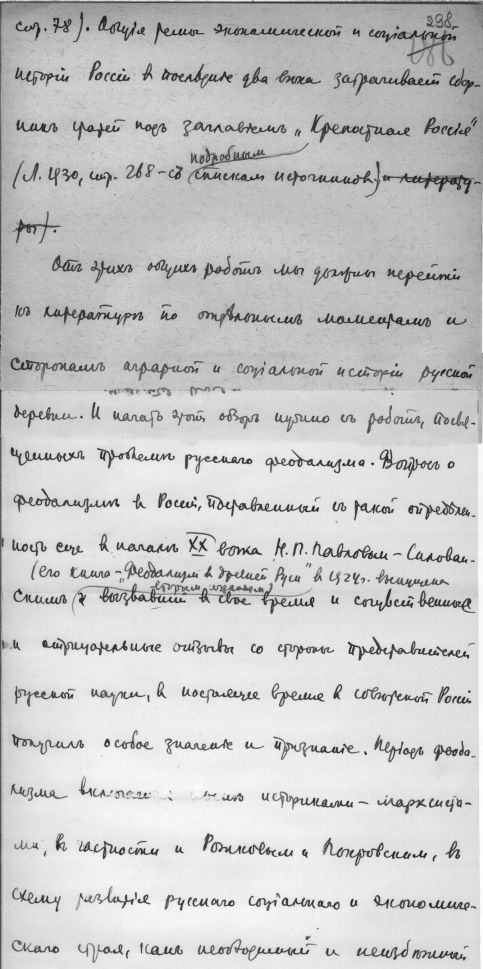 298
стр. 78). Общія темы экономической и соціальной
исторіи Россіи в последніе два века затрагивает сбор-
никъ статей подъ заглавіемъ „Крепостная Россія“
подробным
(Л. 1930, стр. 268 – съ списком источников) и литерату-
ры).
Отъ этихъ общихъ работъ мы должны перейти
къ литературе по отдельнымъ моментамъ и
сторонамъ аграрной и соціальной исторіи русской
деревни. И начать этотъ обзоръ нужно съ работъ, посвя-
щенныхъ проблеме русскаго феодализма. Вопросъ о
феодализме в Россіи, поставленный съ такой определен-
ность еще в начале XX века Н. П. Павловым-Сильван-
(его книга – „Феодализм в древней Руси“ в 1924 г. выпущена
вторым изданием)
скимъ и вызвавшій в свое время и сочувственные
и отрицательные отзывы со стороны представителей
русской науки, в настоящее время в советской Россіи
получилъ особое значеніе и признаніе. Періодъ феода-
лизма историками-марксиста-
ми, в частности и Рожковым и Покровским, въ
схему развитія русскаго соціальнаго и экономиче-
скаго строя, какъ необходимый и неизбежный